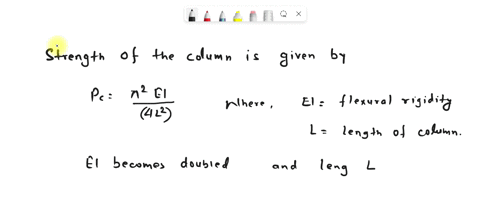 Strength of the column is given by
Pc = π² EI / (4L²) where, EI = flexural rigidity
L = length of column.
EI becomes doubled and leng L